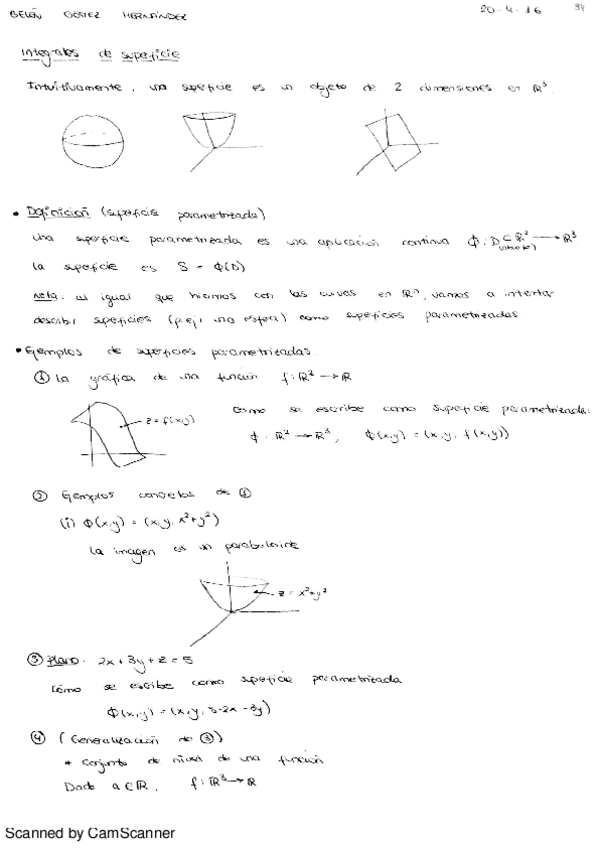 BELÉN GÓMEZ HERNÁNDEZ
20-4-16
34
Integrales de superficie
Intuitivamente, una superficie es un objeto de 2 dimensiones en ℝ³.
• Definición (superficie parametrizada)
Una superficie parametrizada es una aplicación continua Φ: D ⊂ ℝ² → ℝ³
(abierto)
La superficie es S = Φ(D)
Nota: al igual que hicimos con las curvas en ℝⁿ, vamos a intentar
describir superficies (p.ej. una esfera) como superficies parametrizadas
• Ejemplos de superficies parametrizadas.
① La gráfica de una función f: ℝ² → ℝ
z = f(x,y)
Cómo se escribe como superficie parametrizada:
Φ: ℝ² → ℝ³, Φ(x,y) = (x,y, f(x,y))
② Ejemplos concretos de ①
(i) Φ(x,y) = (x,y, x²+y²)
La imagen es un paraboloide
z = x²+y²
③ Plano: 2x + 3y + z = 5
Cómo se escribe como superficie parametrizada
Φ(x,y) = (x,y, 5-2x-3y)
④ (Generalización de ③)
* Conjunto de nivel de una función
Dado a ∈ ℝ, f: ℝ³ → ℝ
Scanned by CamScanner